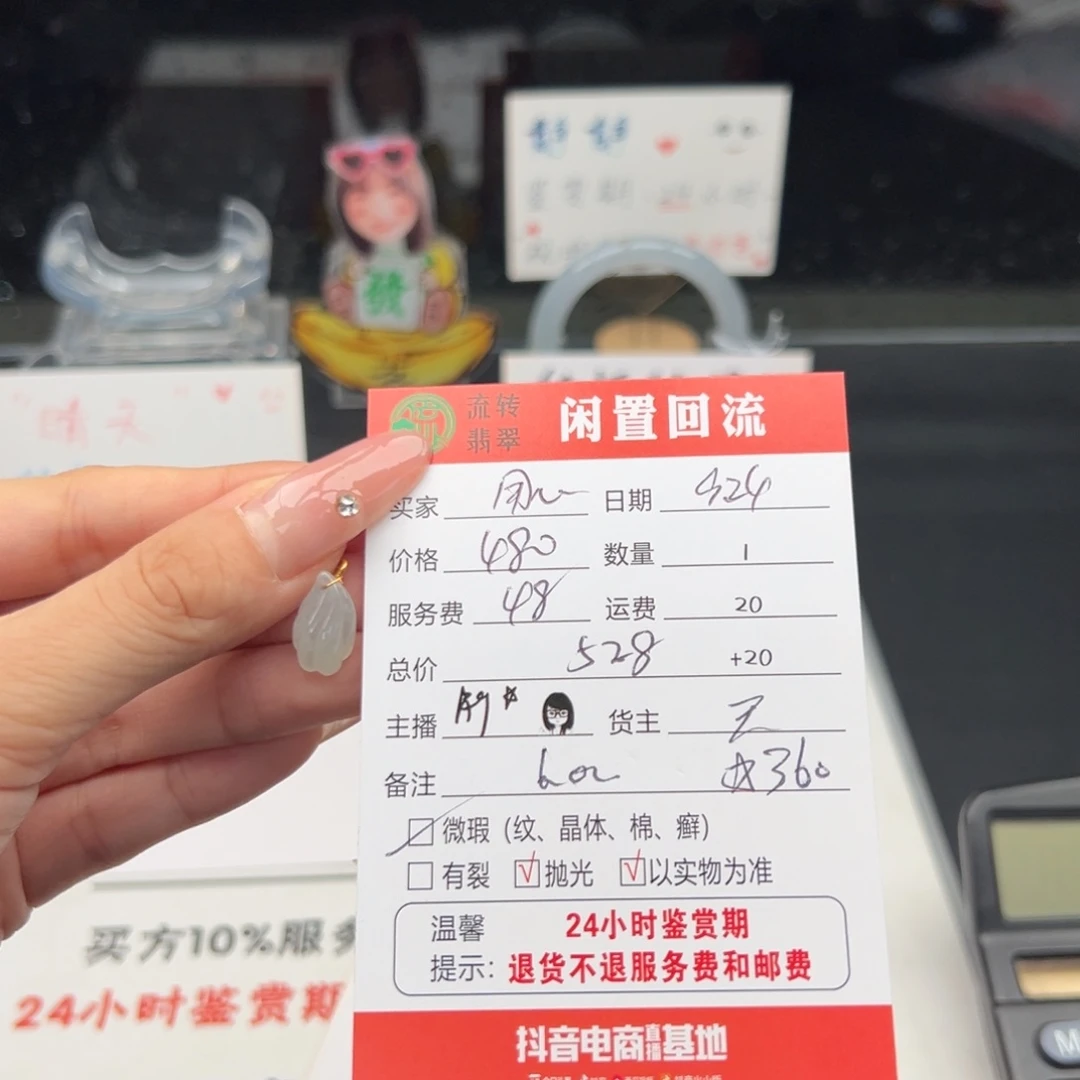 發
"晴天"
流转
翡翠
闲置回流
买家 日期 424
价格 480 数量 1
服务费 48 运费 20
总价 528 +20
主播 货主
备注 360
微瑕(纹、晶体、棉、癣)
有裂 √抛光 √以实物为准
温馨 24小时鉴赏期
提示: 退货不退服务费和邮费
买方10%服务
24小时鉴赏期
抖音电商直播基地
M